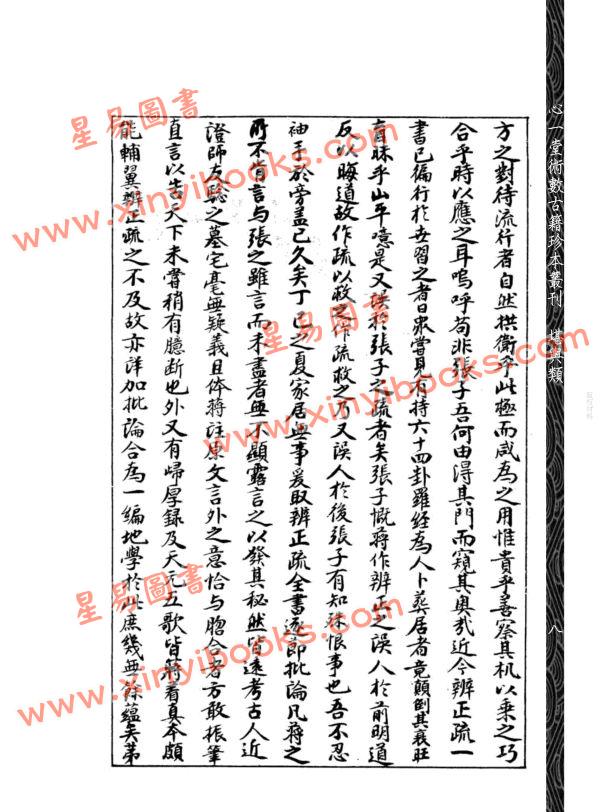 心一堂術數古籍珍本叢刊 堪輿類
八
方之對待流行者自然拱衛乎此極而咸為之用惟貴乎善察其机以乘之巧
合乎時以應之耳嗚呼苟非張子吾何由淂其門而窺其奥哉近今辨正疏一
書已徧行於世習之者日眾嘗見有持六十四卦羅經為人卜葬居者竟顛倒其衰旺
盲昧乎山平噫是又誤於張子之疏者矣張子慨蔣作辨正之誤人於前明道
反以晦道故作疏以救之作疏救之乃又誤人於後張子有知殊恨事也吾不忍
袖手於旁盖已久矣丁巳之夏家居無事爰取辨正疏全書逐即批論凡蔣之
所不肯言与張之雖言而未盡者無不顯露言之以發其秘然皆遠考古人近
證師友驗之墓宅毫無疑義且体蔣注原文言外之意恰与脗合者方敢振筆
直言以告天下未嘗稍有臆断也外又有歸厚録及天元五歌皆蔣看真本頗
能輔翼辨正疏之不及故亦详加批論合為一編地學於此庶幾無餘蘊矣苐
星易圖書
www.xinyibooks.com
星易圖書
www.xinyibooks.com
星易圖書
www.xinyibooks.com